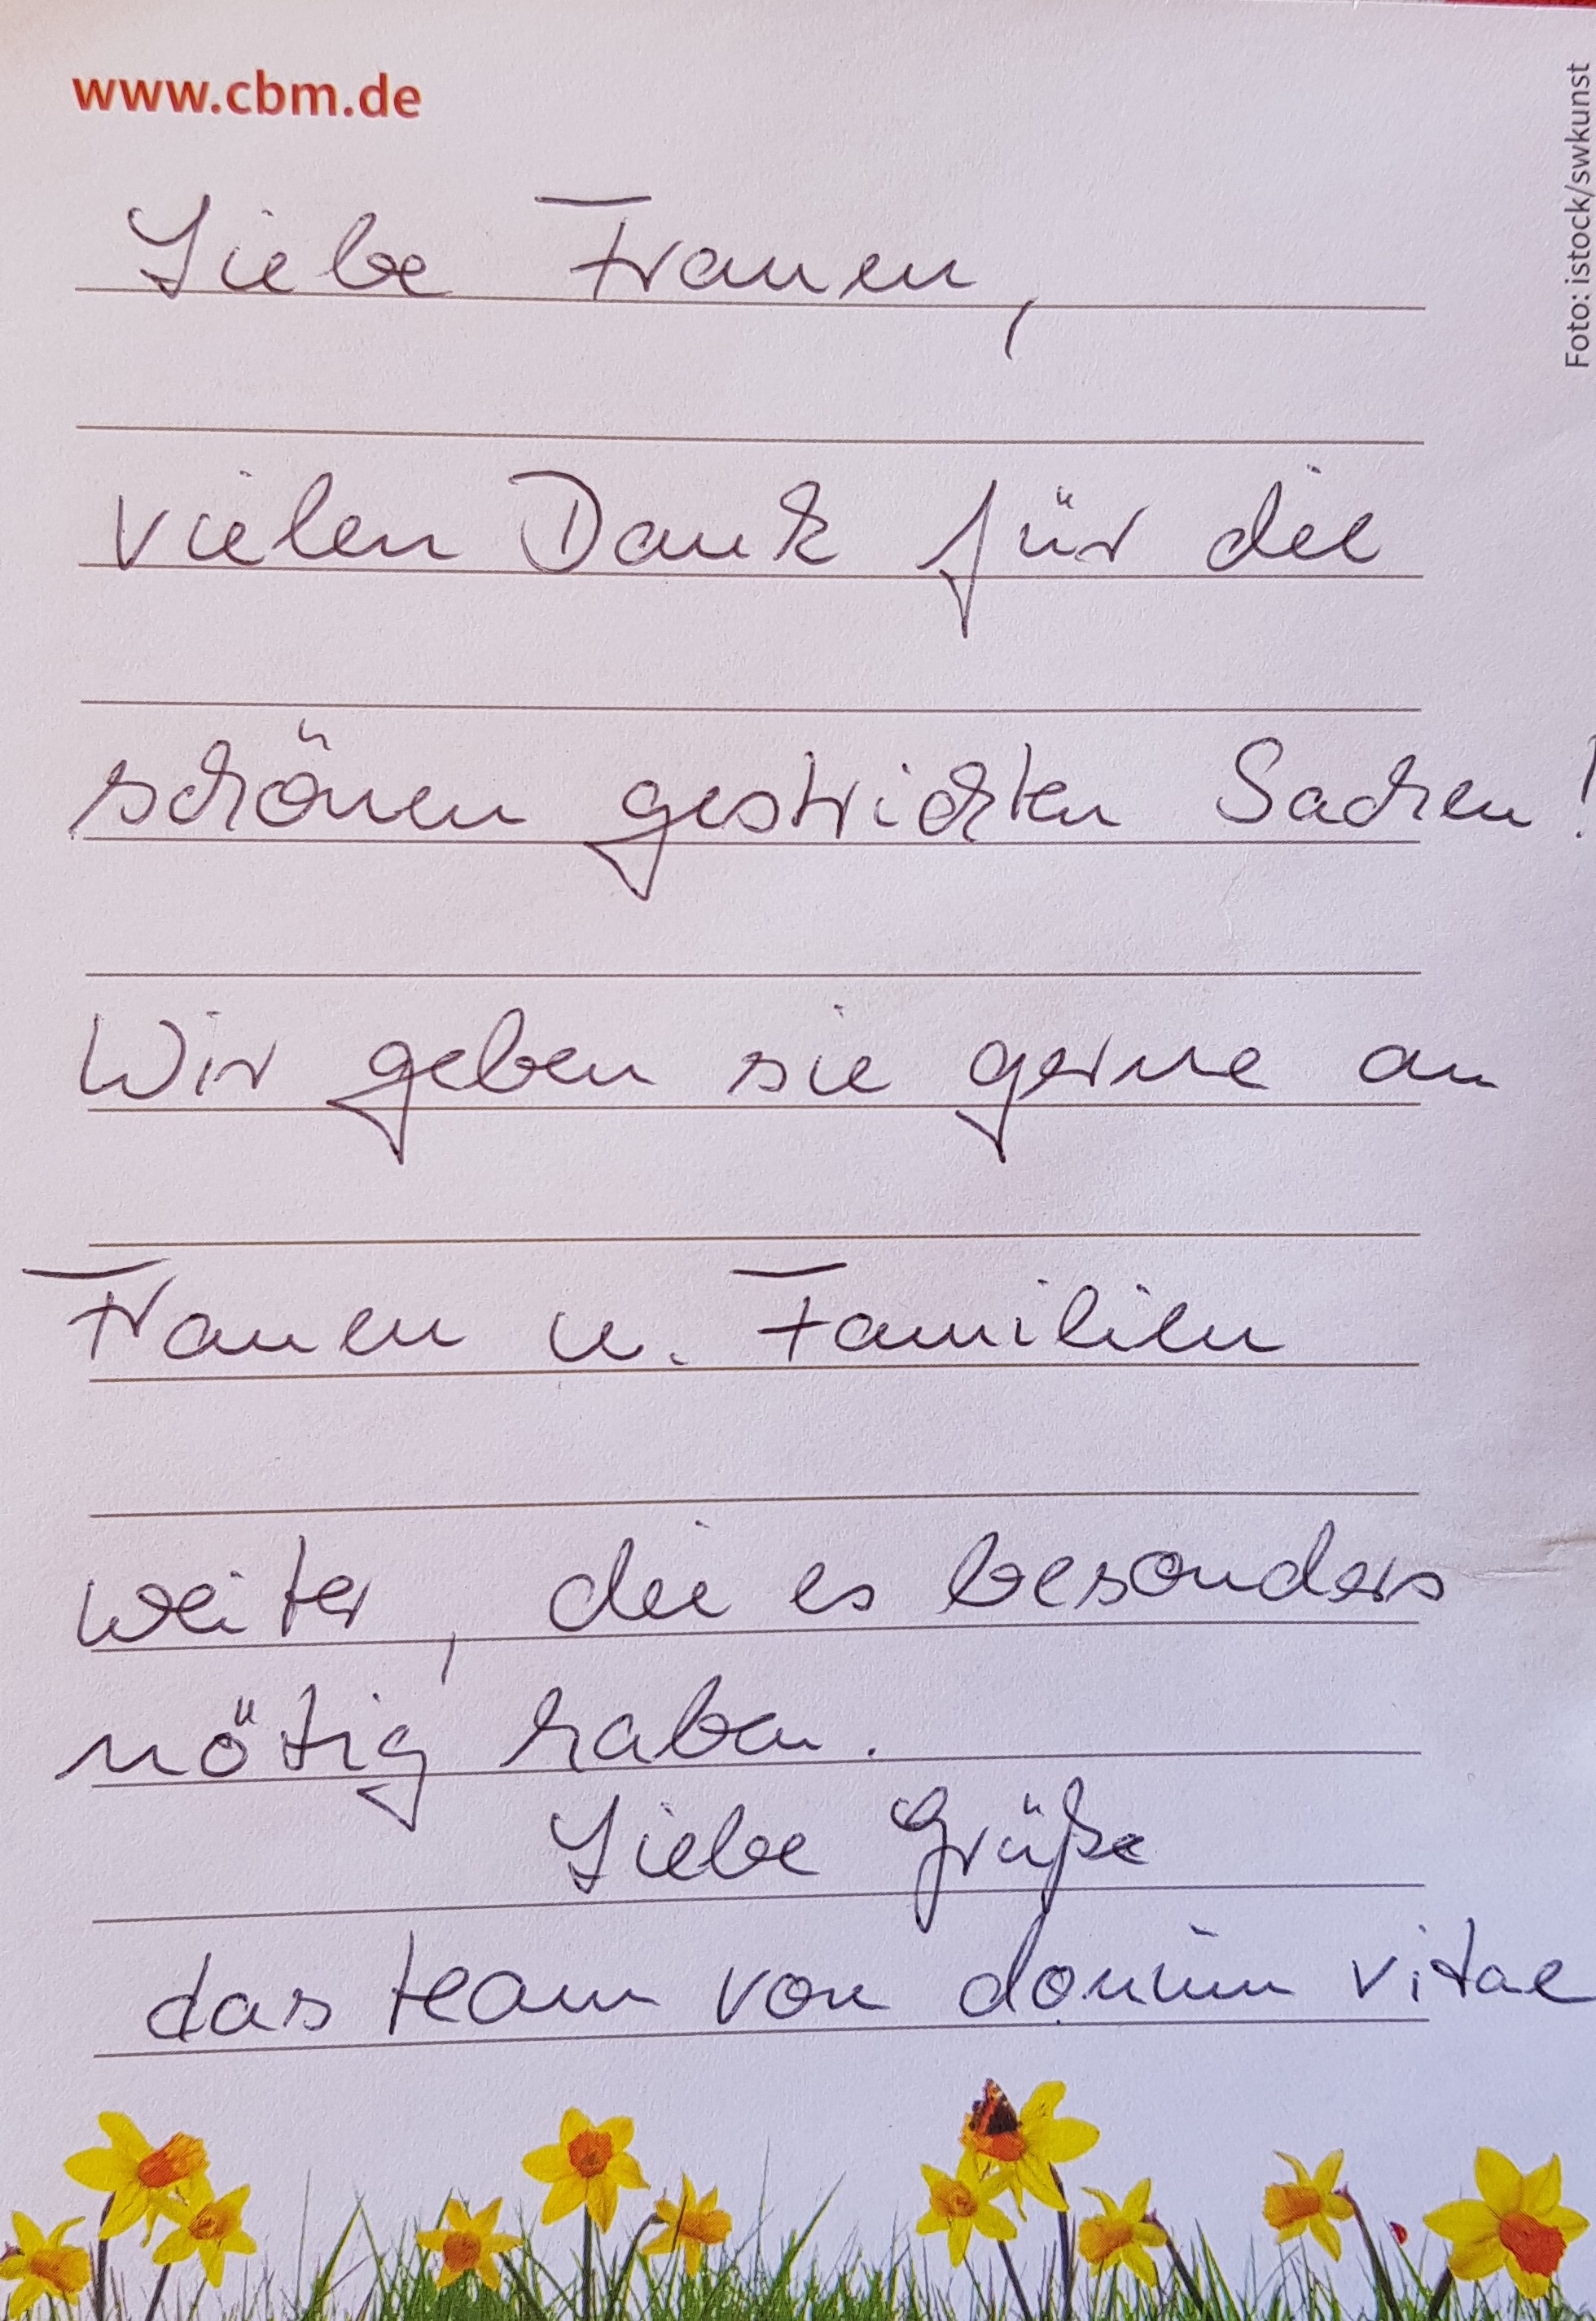 www.cbm.de
Foto: istock/swkunst
Liebe Frauen,
vielen Dank für die
schönen gestrickten Sachen!
Wir geben sie gerne an
Frauen u. Familien
weiter, die es besonders
nötig haben.
Liebe Grüße
das team von donum vitae